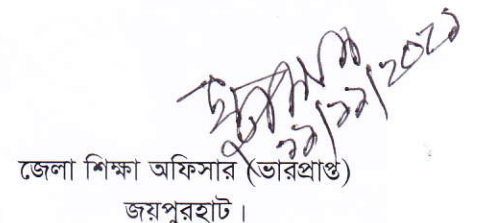 ২১/১১/২০২১
জেলা শিক্ষা অফিসার (ভারপ্রাপ্ত)
জয়পুরহাট।